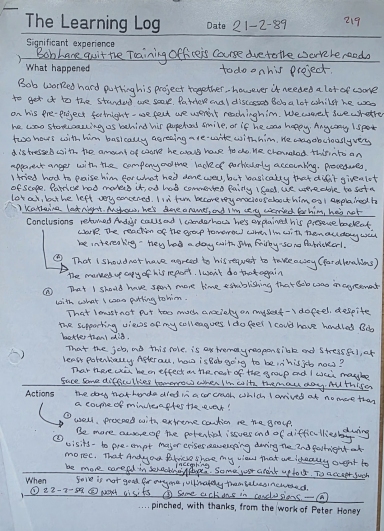 The Learning Log Date 21-2-89 219
Significant experience
Bob Lane quit the Training Officers Course due to the work he needs
What happened to do on his project.
Bob worked hard putting his project together - however it needed a lot of work
to get it to the standard we seek. Patrick and I discussed Bob a lot whilst he was
on his pre-project fortnight - we felt we weren't reaching him. We weren't sure whether
he was stonewalling us behind his perpetual smile, or if he was happy. Anyway I spent
two hours with him basically agreeing a re-write with him. He was obviously very
distressed with the amount of work he would have to do. He channelled this into an
apparent anger with the company and the lack of particularly accounting procedures
I tried hard to praise him for what he'd done well, but basically that didn't give a lot
of scope. Patrick had marked it, and had commented fairly I feel. We were able to sort a
lot out, but he left very concerned. I in turn become very anxious about him, as I explained to
Katherine last night. Anyhow, he's done a runner, and I'm very worried for him, he's not
Conclusions returned Andy's calls and I wonder how he's explained his presence back at
work. The reaction of the group tomorrow when I'm with them all day will
be interesting - they had a day with John Frisby so no Patrick or I.
That I should not have agreed to his request to take away (for alterations)
the marked up copy of his report. I won't do that again
(A) That I should have spent more time establishing that Bob was in agreement
with what I was putting to him.
That I must not put too much anxiety on myself - I do feel despite
the supporting views of my colleagues I do feel I could have handled Bob
better than I did.
That the job, and this role is extremely responsible and stressful, at
least potentially. After all, how is Bob going to be in his job now?
That there will be an effect on the rest of the group and I will maybe
face some difficulties tomorrow when I'm with them all day. All this on
Actions the day that died in a car crash which I arrived at no more than
a couple of minutes after the event!
Well, proceed with extreme caution re the group.
Be more aware of the potential issues and of difficulties during
visits - to pre-empt major crises developing during the 2nd fortnight at
That Andy and Patrick share my view that we really ought to
be more careful in accepting people. Some just aren't up to it. To accept such
When folk is not good for anyone, ultimately themselves included.
① 22-2-89 ② next visits ③ Same actions in conclusions - (A)
......pinched, with thanks, from the work of Peter Honey